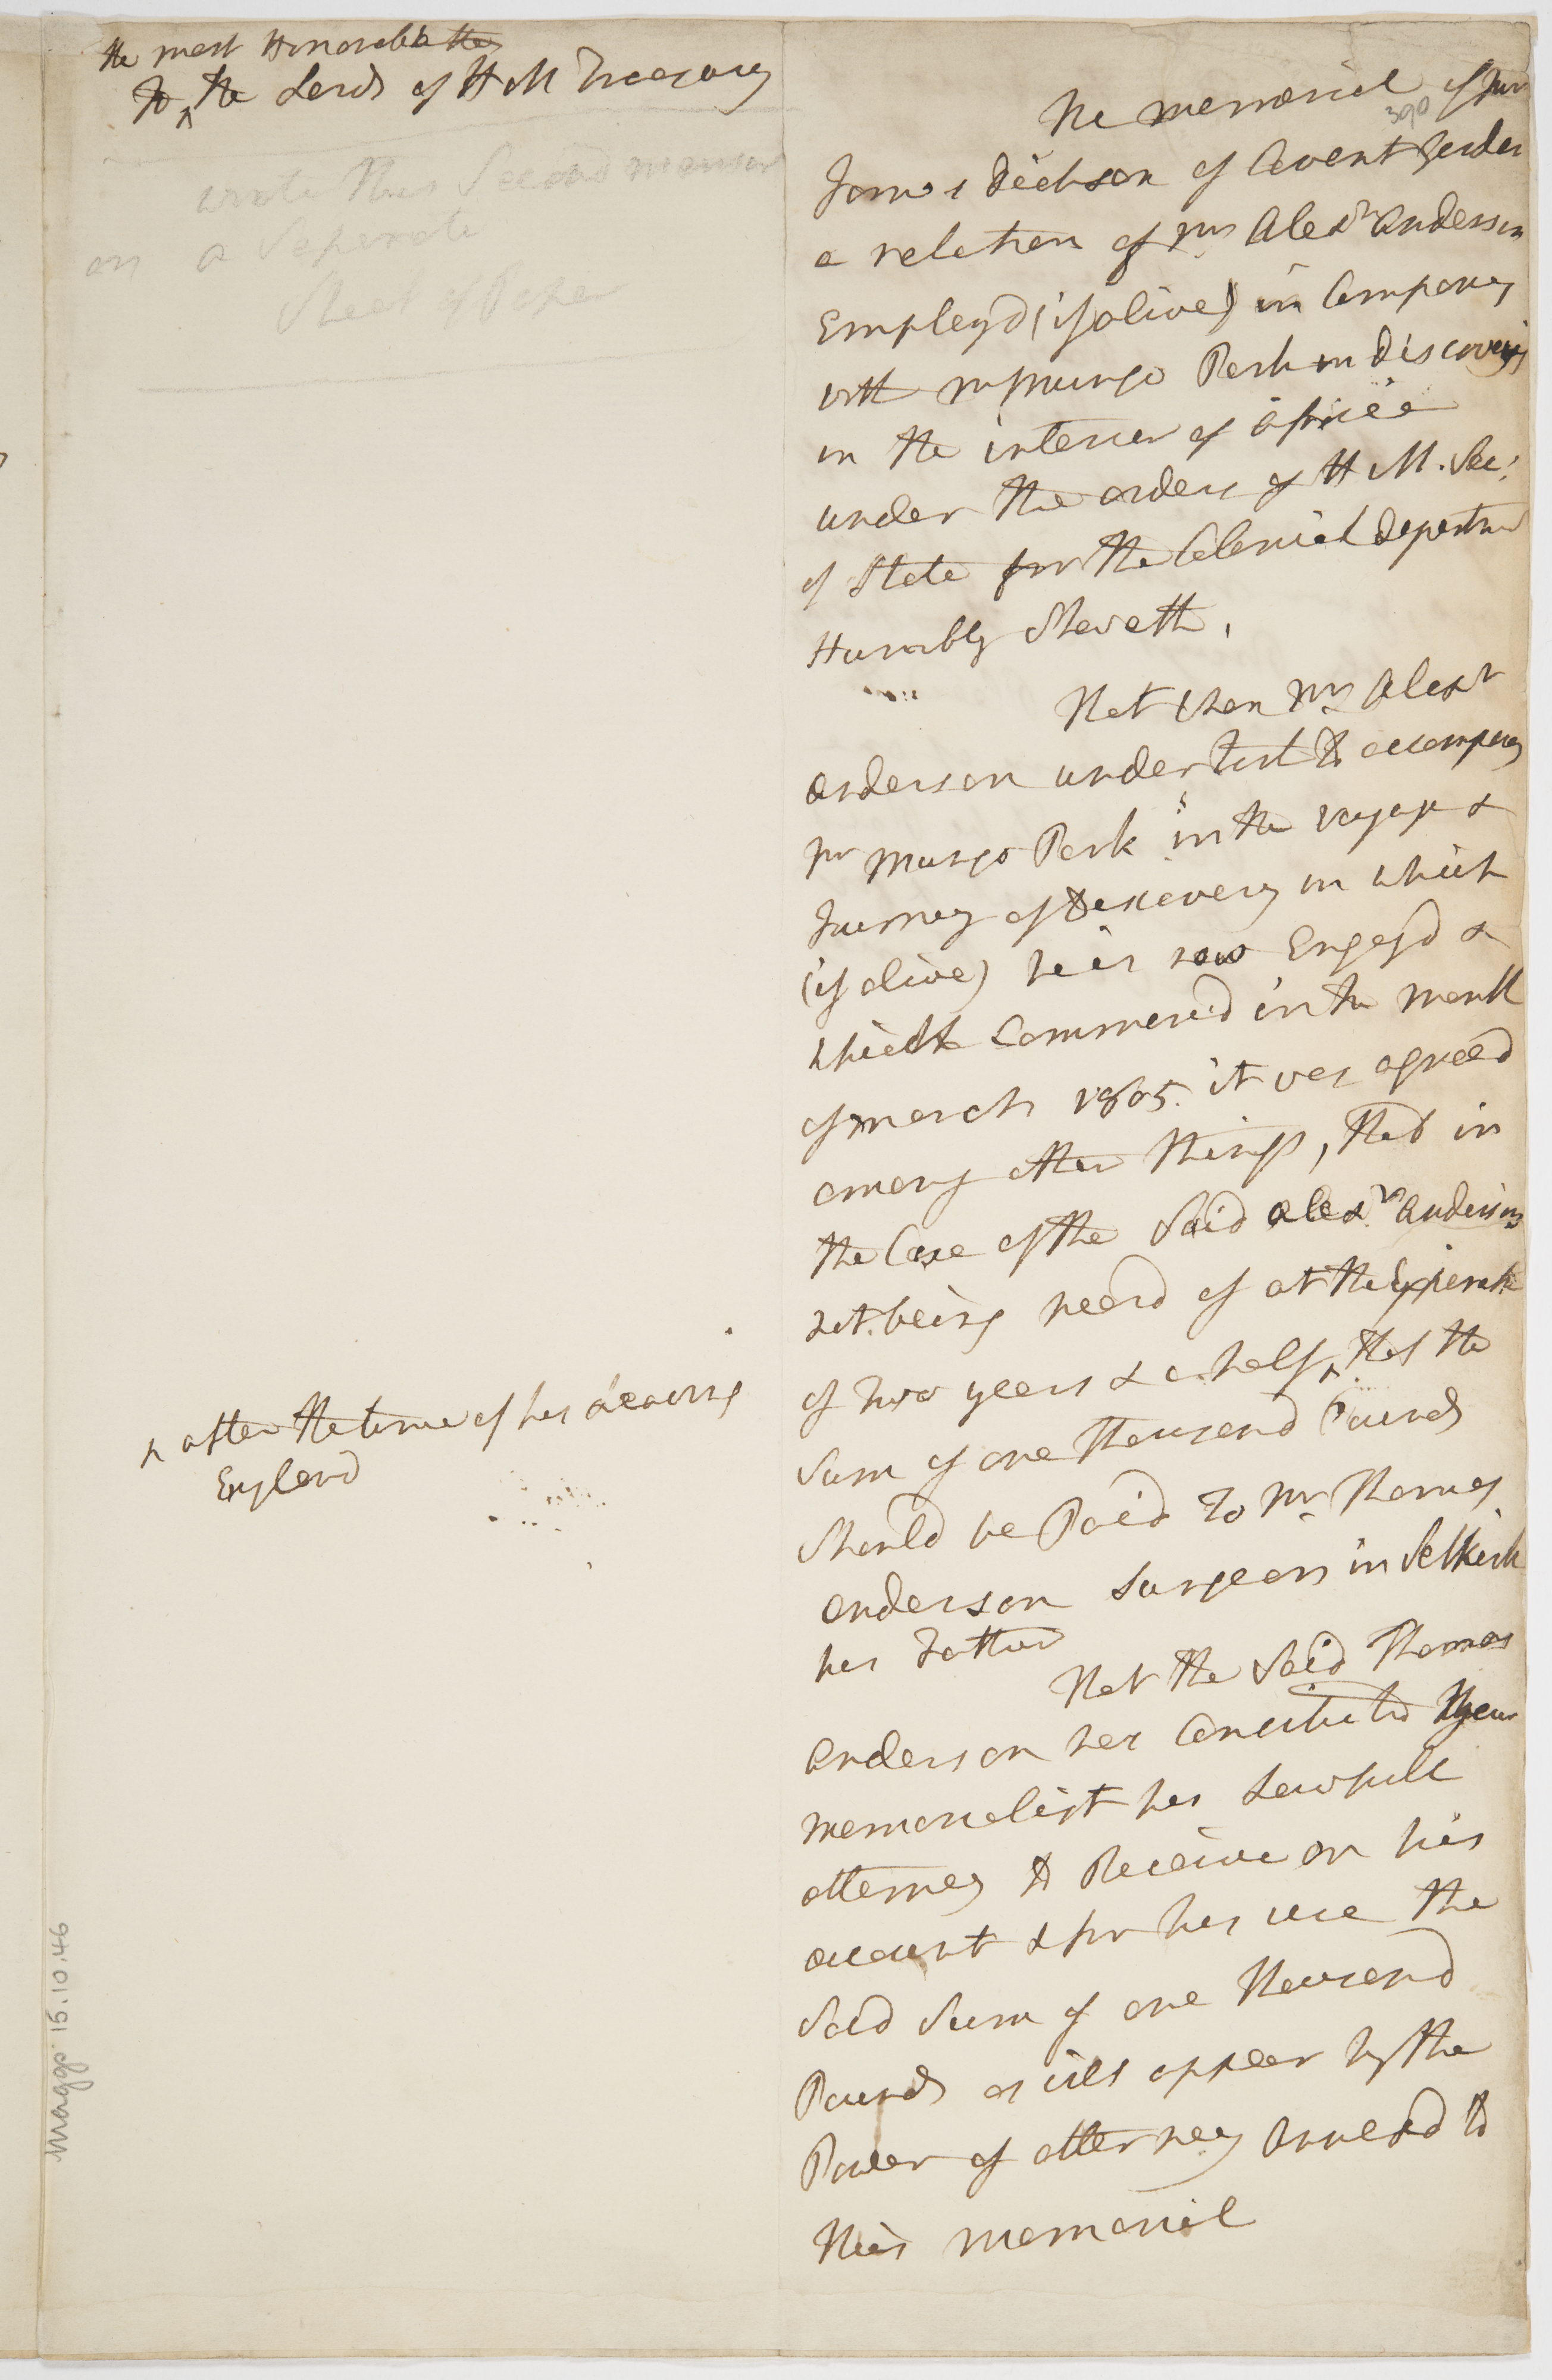 the most Honorable the
To the Lords of H M Treasury
write this Second memor
on a Seperate
Sheet of Paper
The memorial of Mr
390
James Dickson of Covent Garden
a relation of Mr Alexr Anderson
Employd (if alive) in Company
with Mr Mungo Park in discoveries
in the interior of africa
under the orders of H M. Sec:
of State for the Colonial Departm
Humbly Sheweth,
That when Mr Alexr
Anderson undertook to accompany
Mr Mungo Park in the voyage &
Journey of Discovery in which
(if alive) he is now Engagd &
which Commencd in the month
of march 1805. it was agreed
among other things, that in
the Case of the Said Alexr Anderson
not being heard of at the Expiratn
of two years & a half ^ that the
^ after the time of his leaving
England
Sum of one Thousand Pounds
Should be Paid to Mr Thomas
Anderson Surgeon in Selkirk
his Father
That the Said Thomas
Anderson has Constituted your
memorialist his Lawfull
attorney to Receive on his
account & for his use the
Said Sum of one Thousand
Pounds as will appear by the
Power of attorney annexd to
this memorial
Maggs. 15.10.46